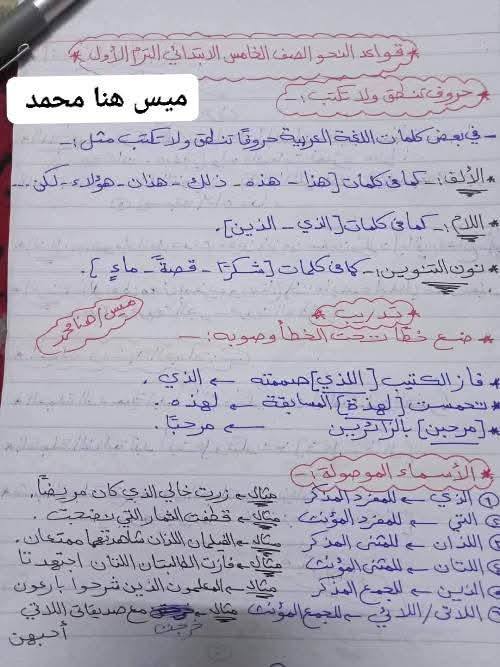 * قواعد النحو الصف الخامس الابتدائي الترم الأول *
* حروف تنطق ولا تكتب :-
ميس هنا محمد
- في بعض كلمات اللغة العربية حروفًا تنطق ولا تكتب مثل :-
* الألف :- كما في كلمات [هذا - هذه - ذلك - هذان - هؤلاء - لكن ---
* اللام :- كما في كلمات [الذي - الذين].
* نون التنوين :- كما في كلمات [شكرًا - قصةً - ماءٍ].
* تدريب *
ميس/هنا محمد
* ضع خطًا تحت الخطأ وصوبه :-
* فاز الكتيب [اللذي] صممته ← الذي .
* تحمست [لهذة] المسابقة ← لهذه .
* [مرحبن] بالزائرين ← مرحبًا .
* الأسماء الموصولة :- *
① الذي ← للمفرد المذكر مثال ← زرت خالي الذي كان مريضًا.
② التي ← للمفرد المؤنث مثال ← قطفت الثمار التي نضجت
③ اللذان ← للمثنى المذكر مثال ← الفيلمان اللذان شاهدتهما ممتعان.
④ اللتان ← للمثنى المؤنث مثال ← فازت الطالبتان اللتان اجتهدتا
⑤ الذين ← للجمع المذكر مثال ← المعلمون الذين شرحوا بارعون
⑥ اللاتي / اللائي ← للجمع المؤنث مثال ← خرجت مع صديقاتي اللاتي
أحبهن